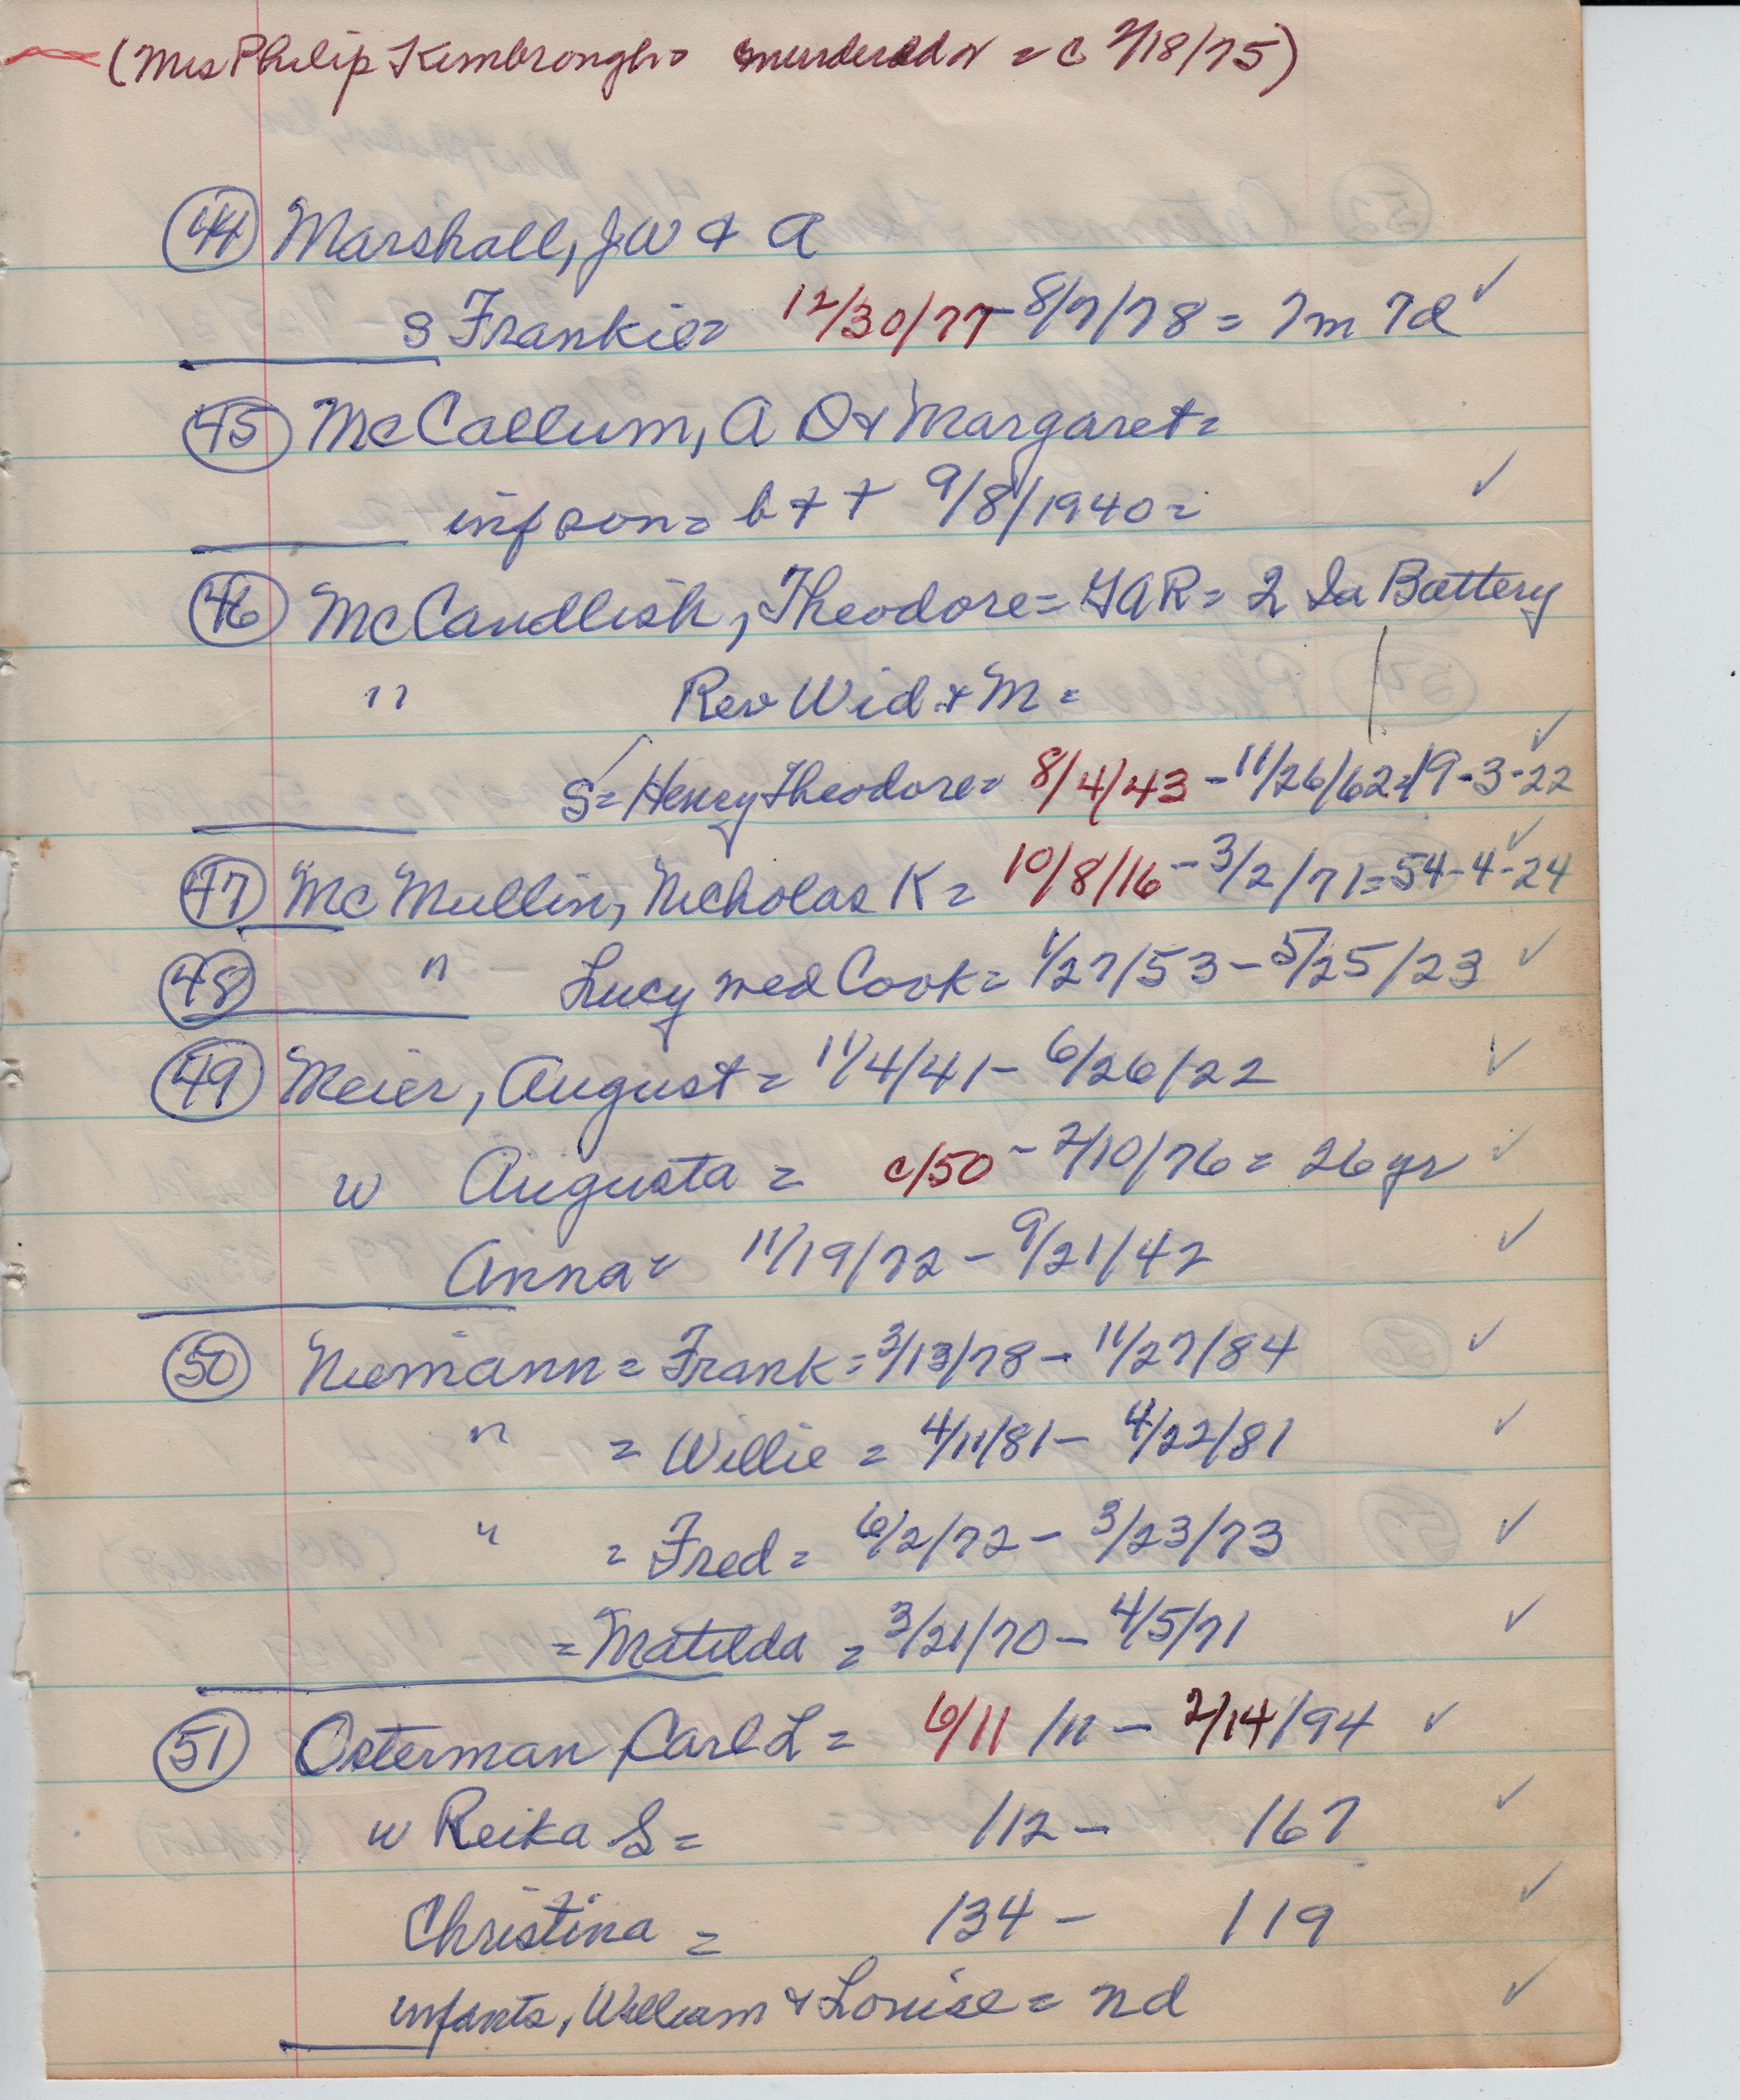 (Mrs Philip Kimbrough = murdered = c 2/18/75)
44 Marshall, J W & A
s Frankie = 12/30/77 - 8/7/78 = 7m 7d ✓
45 McCallum, A D & Margaret =
inf son = b + + 9/8/1940 = ✓
46 McCandlish, Theodore = GAR = 2 Ia Battery
" Rev Wid & M =
S = Henry Theodore = 8/4/43 - 11/26/62 = 19-3-22 ✓
47 McMullin, Nicholas K = 10/8/16 - 3/2/71 = 54-4-24 ✓
48 " Lucy med Cook = 1/27/53 - 5/25/23 ✓
49 Meier, August = 11/4/41 - 6/26/22 ✓
w Augusta = c/50 - 2/10/76 = 26 yr ✓
Anna = 11/19/72 - 9/21/42 ✓
50 Niemann = Frank = 3/13/78 - 11/27/84 ✓
" = Willie = 4/11/81 - 4/22/81 ✓
" = Fred = 6/2/72 - 3/23/73 ✓
= Matilda = 3/21/70 - 4/5/71 ✓
51 Osterman, Carl L = 6/11/11 - 2/14/94 ✓
w Reika S = /12 - /67 ✓
Christina = /34 - /19 ✓
infants, William & Louise = nd ✓